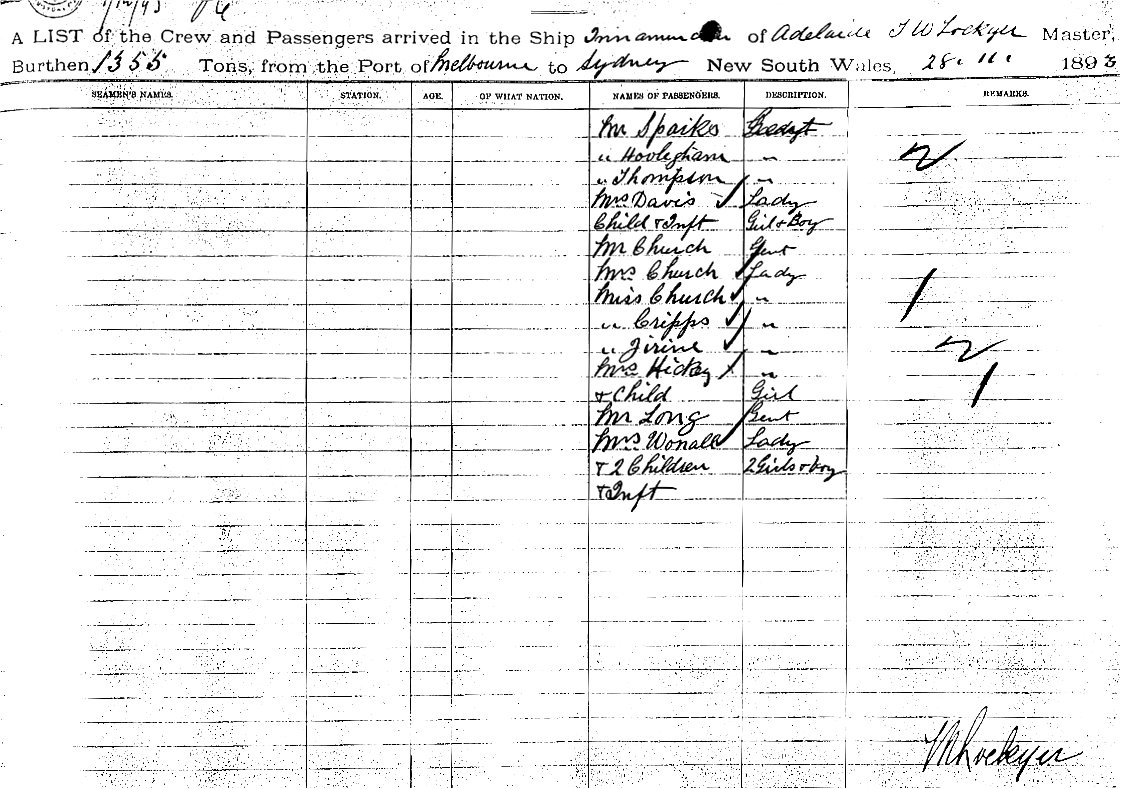 1/12/93
A LIST of the Crew and Passengers arrived in the Ship Innamincka of Adelaide J W Lockyer Master,
Burthen 1355 Tons, from the Port of Melbourne to Sydney New South Wales, 28. 11. 1893
SEAMEN'S NAMES. STATION. AGE. OF WHAT NATION. NAMES OF PASSENGERS. DESCRIPTION. REMARKS.
Mr Sparks
" "
" Thompson "
Mrs Davis Lady
Child & Inft Girl & Boy
Mr Church Gent
Mrs Church Lady
Miss Church "
" Cripps "
" "
Mrs Hickey "
& Child Girl
Mr Long Gent
Mrs Wonall Lady
& 2 Children 2 Girls & boy
& Inft
Lockyer